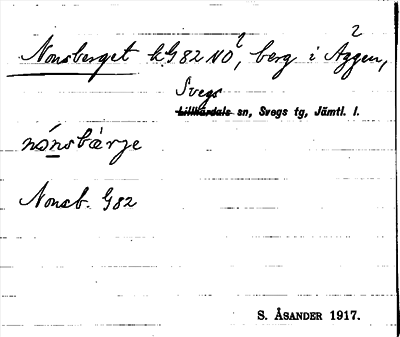 Nonsberget k.G82NO?, berg i Äggen, 2
Svegs
Lillhärdals sn, Svegs tg, Jämtl. l.
nónsbàrje
Nonsb. G82
S. ÅSANDER 1917.